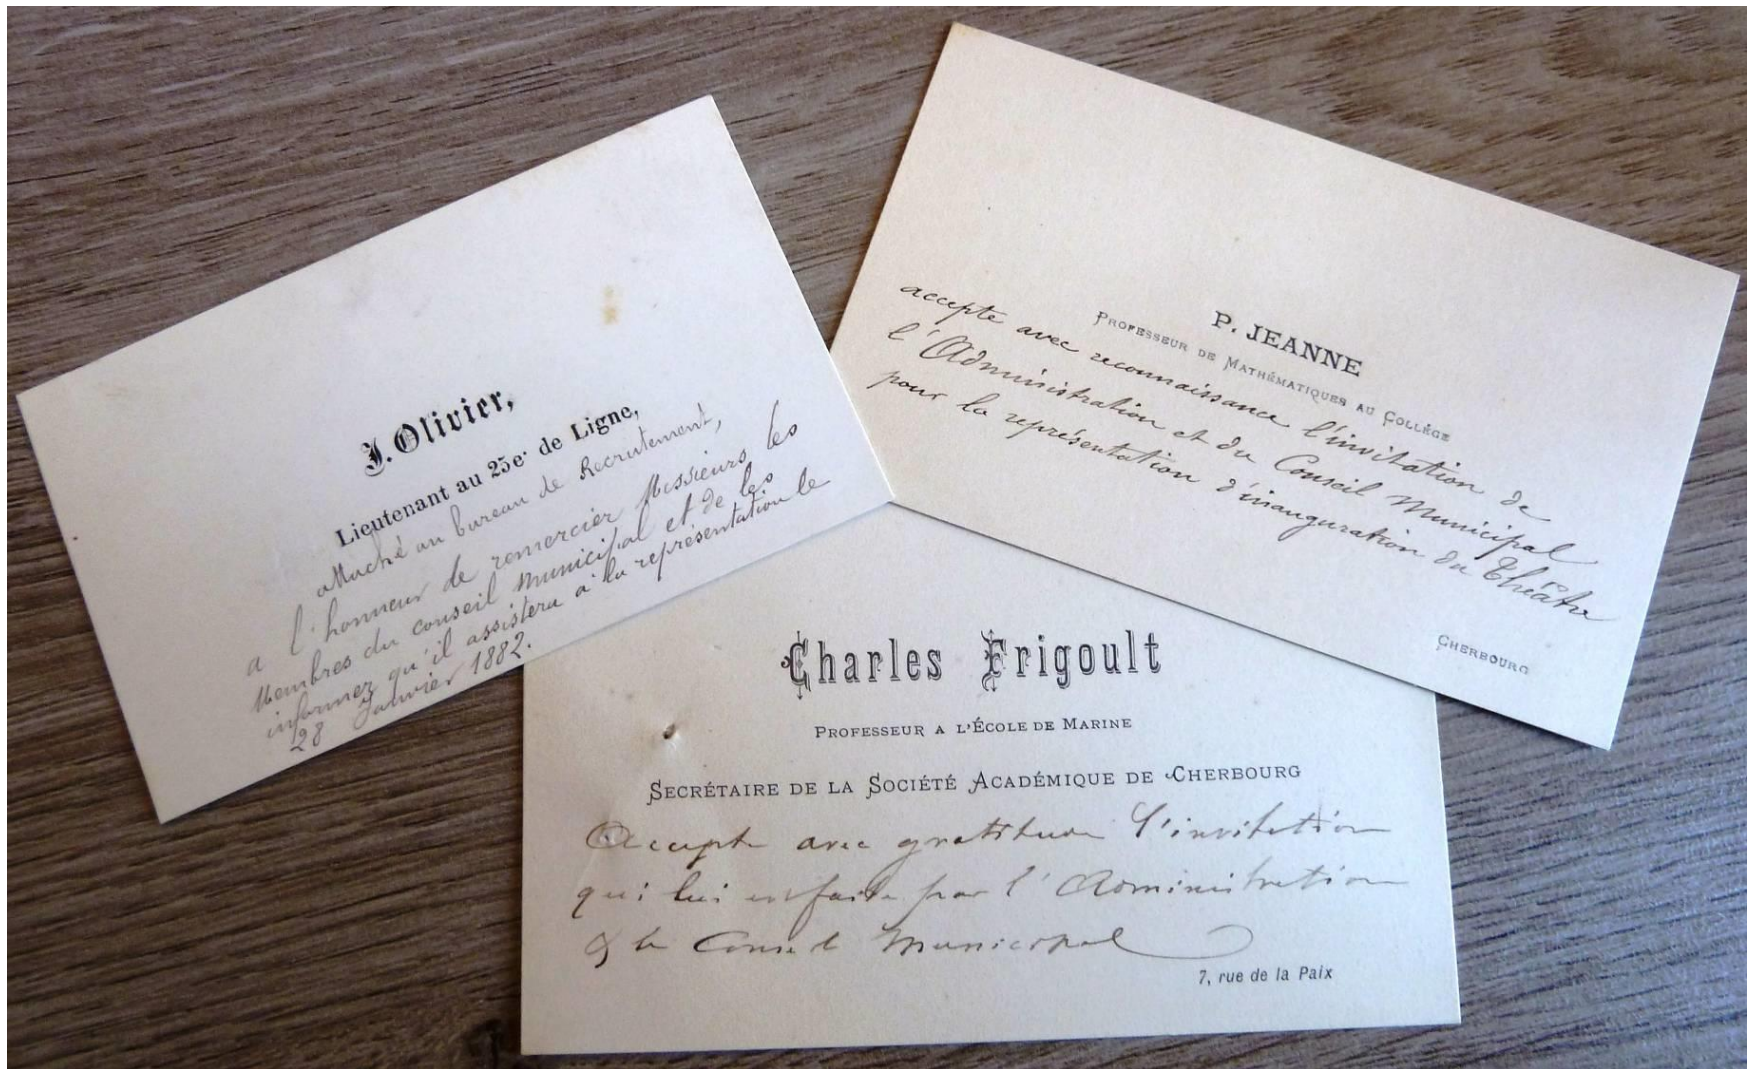 J. Olivier,
Lieutenant au 25e de Ligne,
attaché au bureau de Recrutement,
a l'honneur de remercier Messieurs les
Membres du conseil municipal et de les
informer qu'il assistera à la représentation le
28 Janvier 1882.
P. JEANNE
PROFESSEUR DE MATHÉMATIQUES AU COLLÉGE
accepte avec reconnaissance l'invitation de
l'Administration et du Conseil Municipal
pour la représentation d'inauguration du Théâtre
CHERBOURG
Charles Frigoult
PROFESSEUR A L'ÉCOLE DE MARINE
SECRÉTAIRE DE LA SOCIÉTÉ ACADÉMIQUE DE CHERBOURG
Accepte avec gratitude l'invitation
qui lui est faite par l'Administration
& le Conseil Municipal
7, rue de la Paix